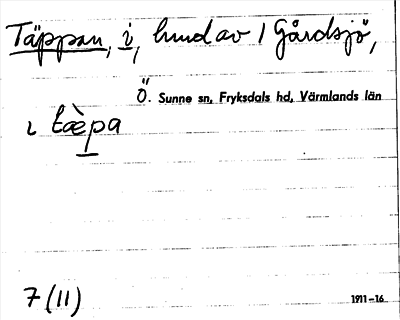 Täppan, i, hund av 1 Gårdsjö,
Ö. Sunne sn, Fryksdals hd, Värmlands län
ı tæ̀pa
7 (11)
1911–16